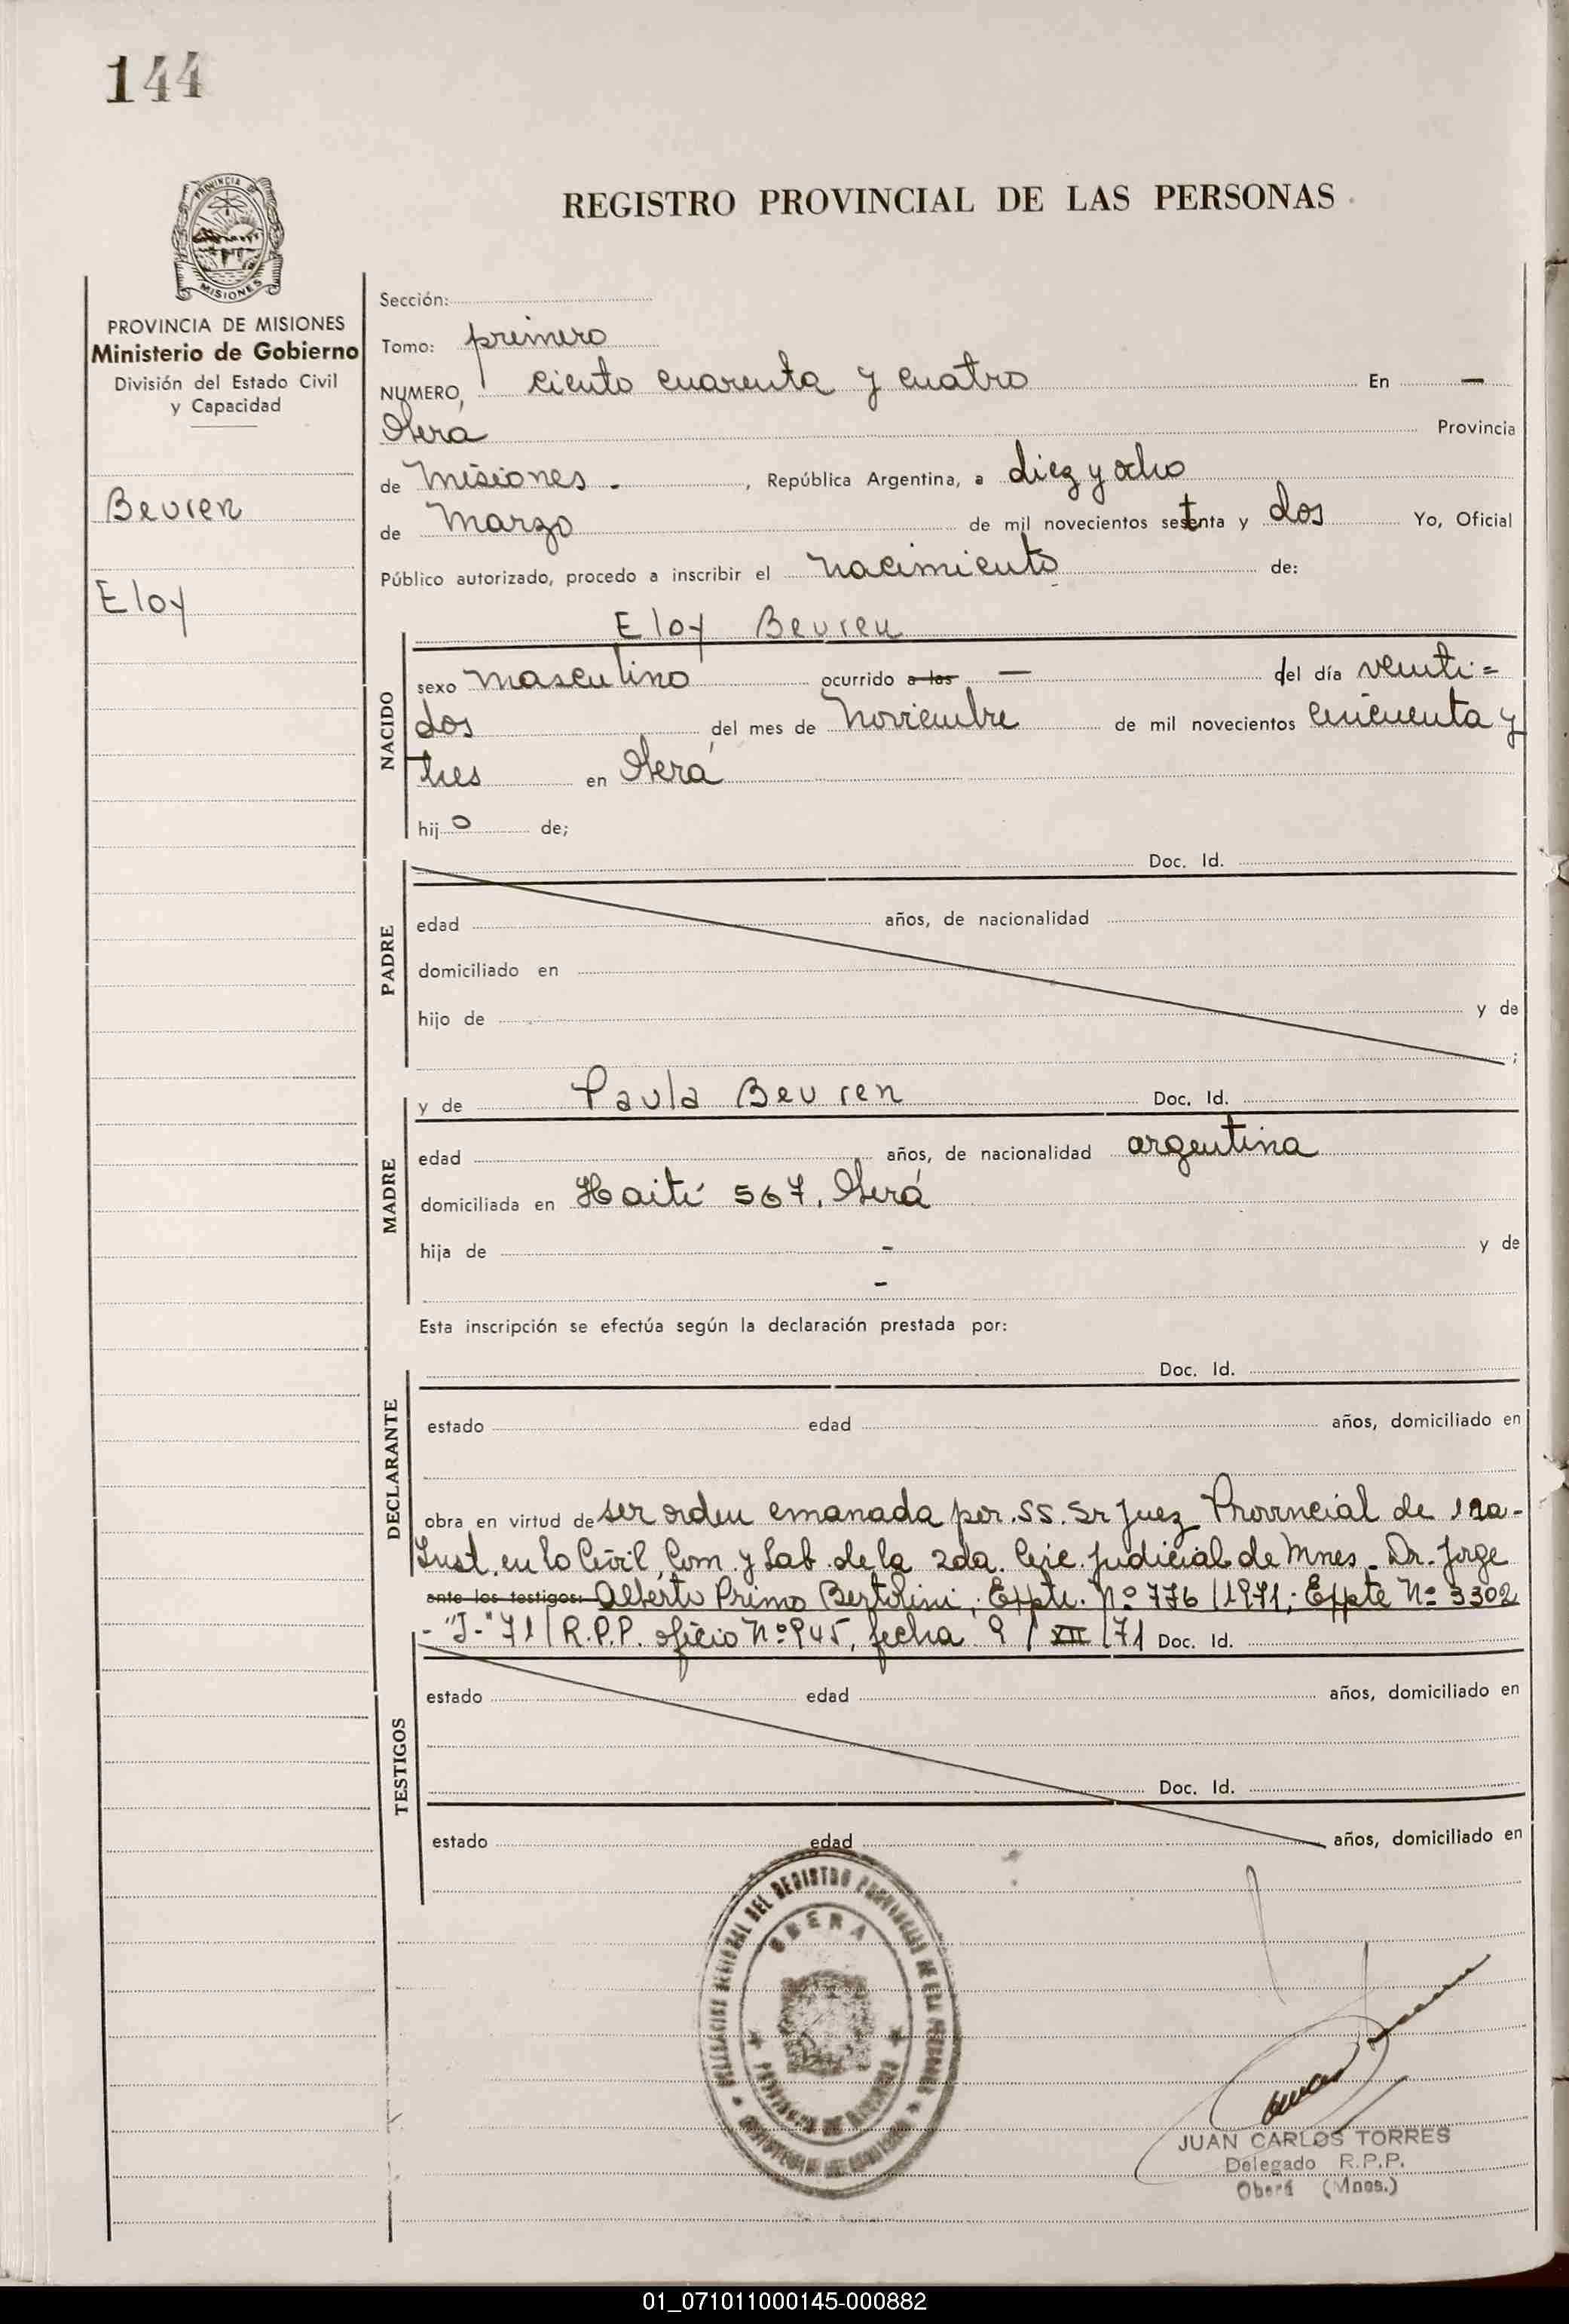 144
REGISTRO PROVINCIAL DE LAS PERSONAS
PROVINCIA DE
MISIONES
PROVINCIA DE MISIONES
Ministerio de Gobierno
División del Estado Civil
y Capacidad
Beuren
Eloy
Sección:
Tomo: primero
NUMERO, ciento cuarenta y cuatro En —
Oberá Provincia
de Misiones - , República Argentina, a diez y ocho
de Marzo de mil novecientos setenta y dos Yo, Oficial
Público autorizado, procedo a inscribir el nacimiento de:
Eloy Beuren
NACIDO
sexo masculino ocurrido a las — del día veinti=
dos del mes de Noviembre de mil novecientos cincuenta y
tres en Oberá
hijo de;
PADRE
Doc. Id.
edad años, de nacionalidad
domiciliado en
hijo de y de
;
MADRE
y de Paula Beuren Doc. Id.
edad años, de nacionalidad argentina
domiciliada en Haití 567. Oberá
hija de - y de
-
Esta inscripción se efectúa según la declaración prestada por:
DECLARANTE
Doc. Id.
estado edad años, domiciliado en
obra en virtud de ser orden emanada por SS. Sr Juez Provincial de 1ra-
Inst. en lo Civil, Com. y Lab. de la 2da. Circ. Judicial de Mnes. Dr. Jorge
ante los testigos: Alberto Primo Bertolini, Expte. Nº 776/1971; Expte Nº 3302
-"J-"71/R.P.P. oficio Nº 945, fecha 9/XII/71 Doc. Id.
TESTIGOS
estado edad años, domiciliado en
Doc. Id.
estado edad años, domiciliado en
DELEGACION REGIONAL DEL REGISTRO PROVINCIAL DE LAS PERSONAS
OBERA
PROVINCIA DE MISIONES
JUAN CARLOS TORRES
Delegado R.P.P.
Oberá (Mnes.)
01_071011000145-000882